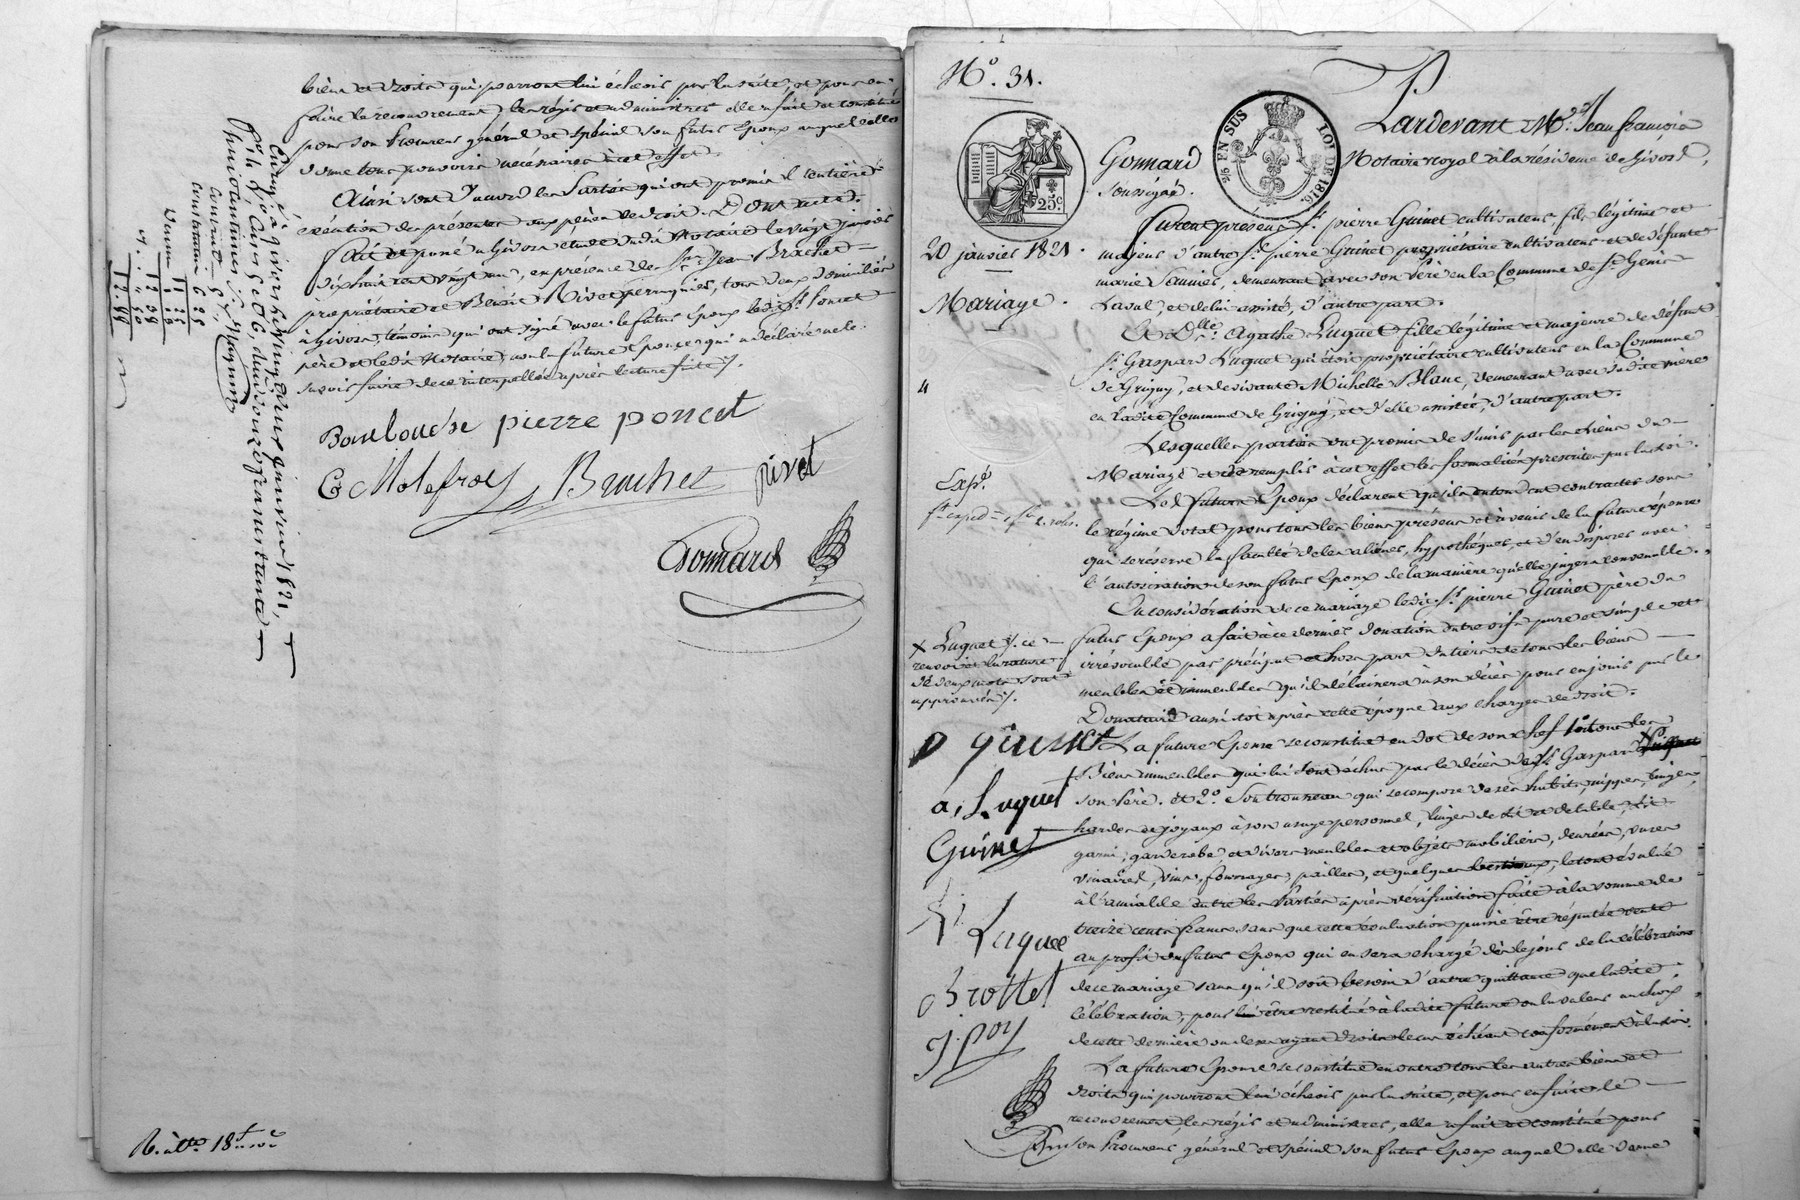 biens et droits qui pourront lui échoir par la suite, et pour en
faire le recouvrement, les régir et administrer elle a fait et constitué
pour son Procureur général et spécial son futur Epoux auquel elle
donne tous pouvoirs nécessaires à cet effet.
Ainsi sont d'accord les Parties qui ont promis l'entière
exécution des présentes aux peines de droit. Dont acte.
Fait et passé à Givors étude dudit Notaire le vingt janvier
dix huit cent vingt un, en présence de Sr. Jean Brachet
propriétaire et Benoit Rivet perruquier, tous deux domiciliés
à Givors, témoins qui ont signé avec le futur Epoux ledit Sr. Poncet
père et ledit Notaire, non la future Epouse qui a déclaré ne le
savoir faire de ce interpellée après lecture faite.
pierre poncet
Brachet
rivet
Gonnard
Enreg. à Givors le vingt deux janvier 1821,
huit
Contrat
Vente
No. 31.
25 c
25 EN SUS
LOI DE 1816.
Pardevant Me. Jean françois
Gonnard Notaire royal à la résidence de Givors,
soussigné.
20 janvier 1821.
Mariage.
4
Furent présens Sr. pierre Guinet cultivateur fils légitime et
majeur d'autre Sr. pierre Guinet propriétaire cultivateur et de défunte
marie Saunier, demeurant avec son Père en la Commune de St. Genis
Laval, et de lui assisté, d'autre part.
Et Dlle. Agathe Luquet fille légitime et majeure de défunt
Sr. Gaspard Luquet qui étoit propriétaire cultivateur en la Commune
de Grigny, et de vivante Michelle Blanc, demeurant avec sadite mère
en ladite Commune de Grigny, et d'elle assistée, d'autre part.
Lesquelles parties ont promis de s'unir par les liens du
Mariage et de remplir à cet effet les formalités prescrites par la loi.
Expé.
Les futurs Epoux déclarent qu'ils entendent contracter sous
le régime dotal pour tous les biens présens et à venir de la future épouse
qui se réserve la faculté de les aliéner, hypothéquer, et d'en disposer avec
l'autorisation de son futur Epoux de la manière qu'elle jugera convenable.
En considération de ce mariage ledit Sr. pierre Guinet père du
futur Epoux a fait à ce dernier donation entre vifs pure et simple et
irrévocable par préciput et hors part du tiers de tous les biens
meubles et immeubles qu'il délaissera à son décès pour en jouir par le
Donataire aussitôt après cette époque aux charges de droit.
x Luquet ce
renvoi et la rature
de deux mots sont
approuvés.
La future Epouse se constitue en dot de son chef 1o. tous les
Biens immeubles qui lui sont échus par le décès de Sr. Gaspard x
son Père. et 2o. Son trousseau qui se compose de ses habits, nippes, linges,
hardes et joyaux à son usage personnel, linges de lit et de table, lit
garni, garderobe, et divers meubles et objets mobiliers, denrées, vases
vinaires, vins, fourrages, pailles, et quelques bestiaux, le tout évalué
à l'amiable entre les Parties après vérification faite à la somme de
treize cents francs sans que cette évaluation puisse être réputée vente
au profit du futur Epoux qui en sera chargé dès le jour de la célébration
de ce mariage sans qu'il soit besoin d'autre quittance que ladite
célébration, pour être restitué à ladite future ou la valeur au choix
de cette dernière ou de ses ayant droits le cas échéant conformément à la loi.
La future Epouse se constitue en outre tous les autres biens et
droits qui pourront lui échoir par la suite, et pour en faire le
recouvrement, les régir et administrer, elle a fait et constitué pour
son Procureur général et spécial son futur Epoux auquel elle donne
p guinet
a, Luquet
Guinet
Luquet
Brottet
j. poy